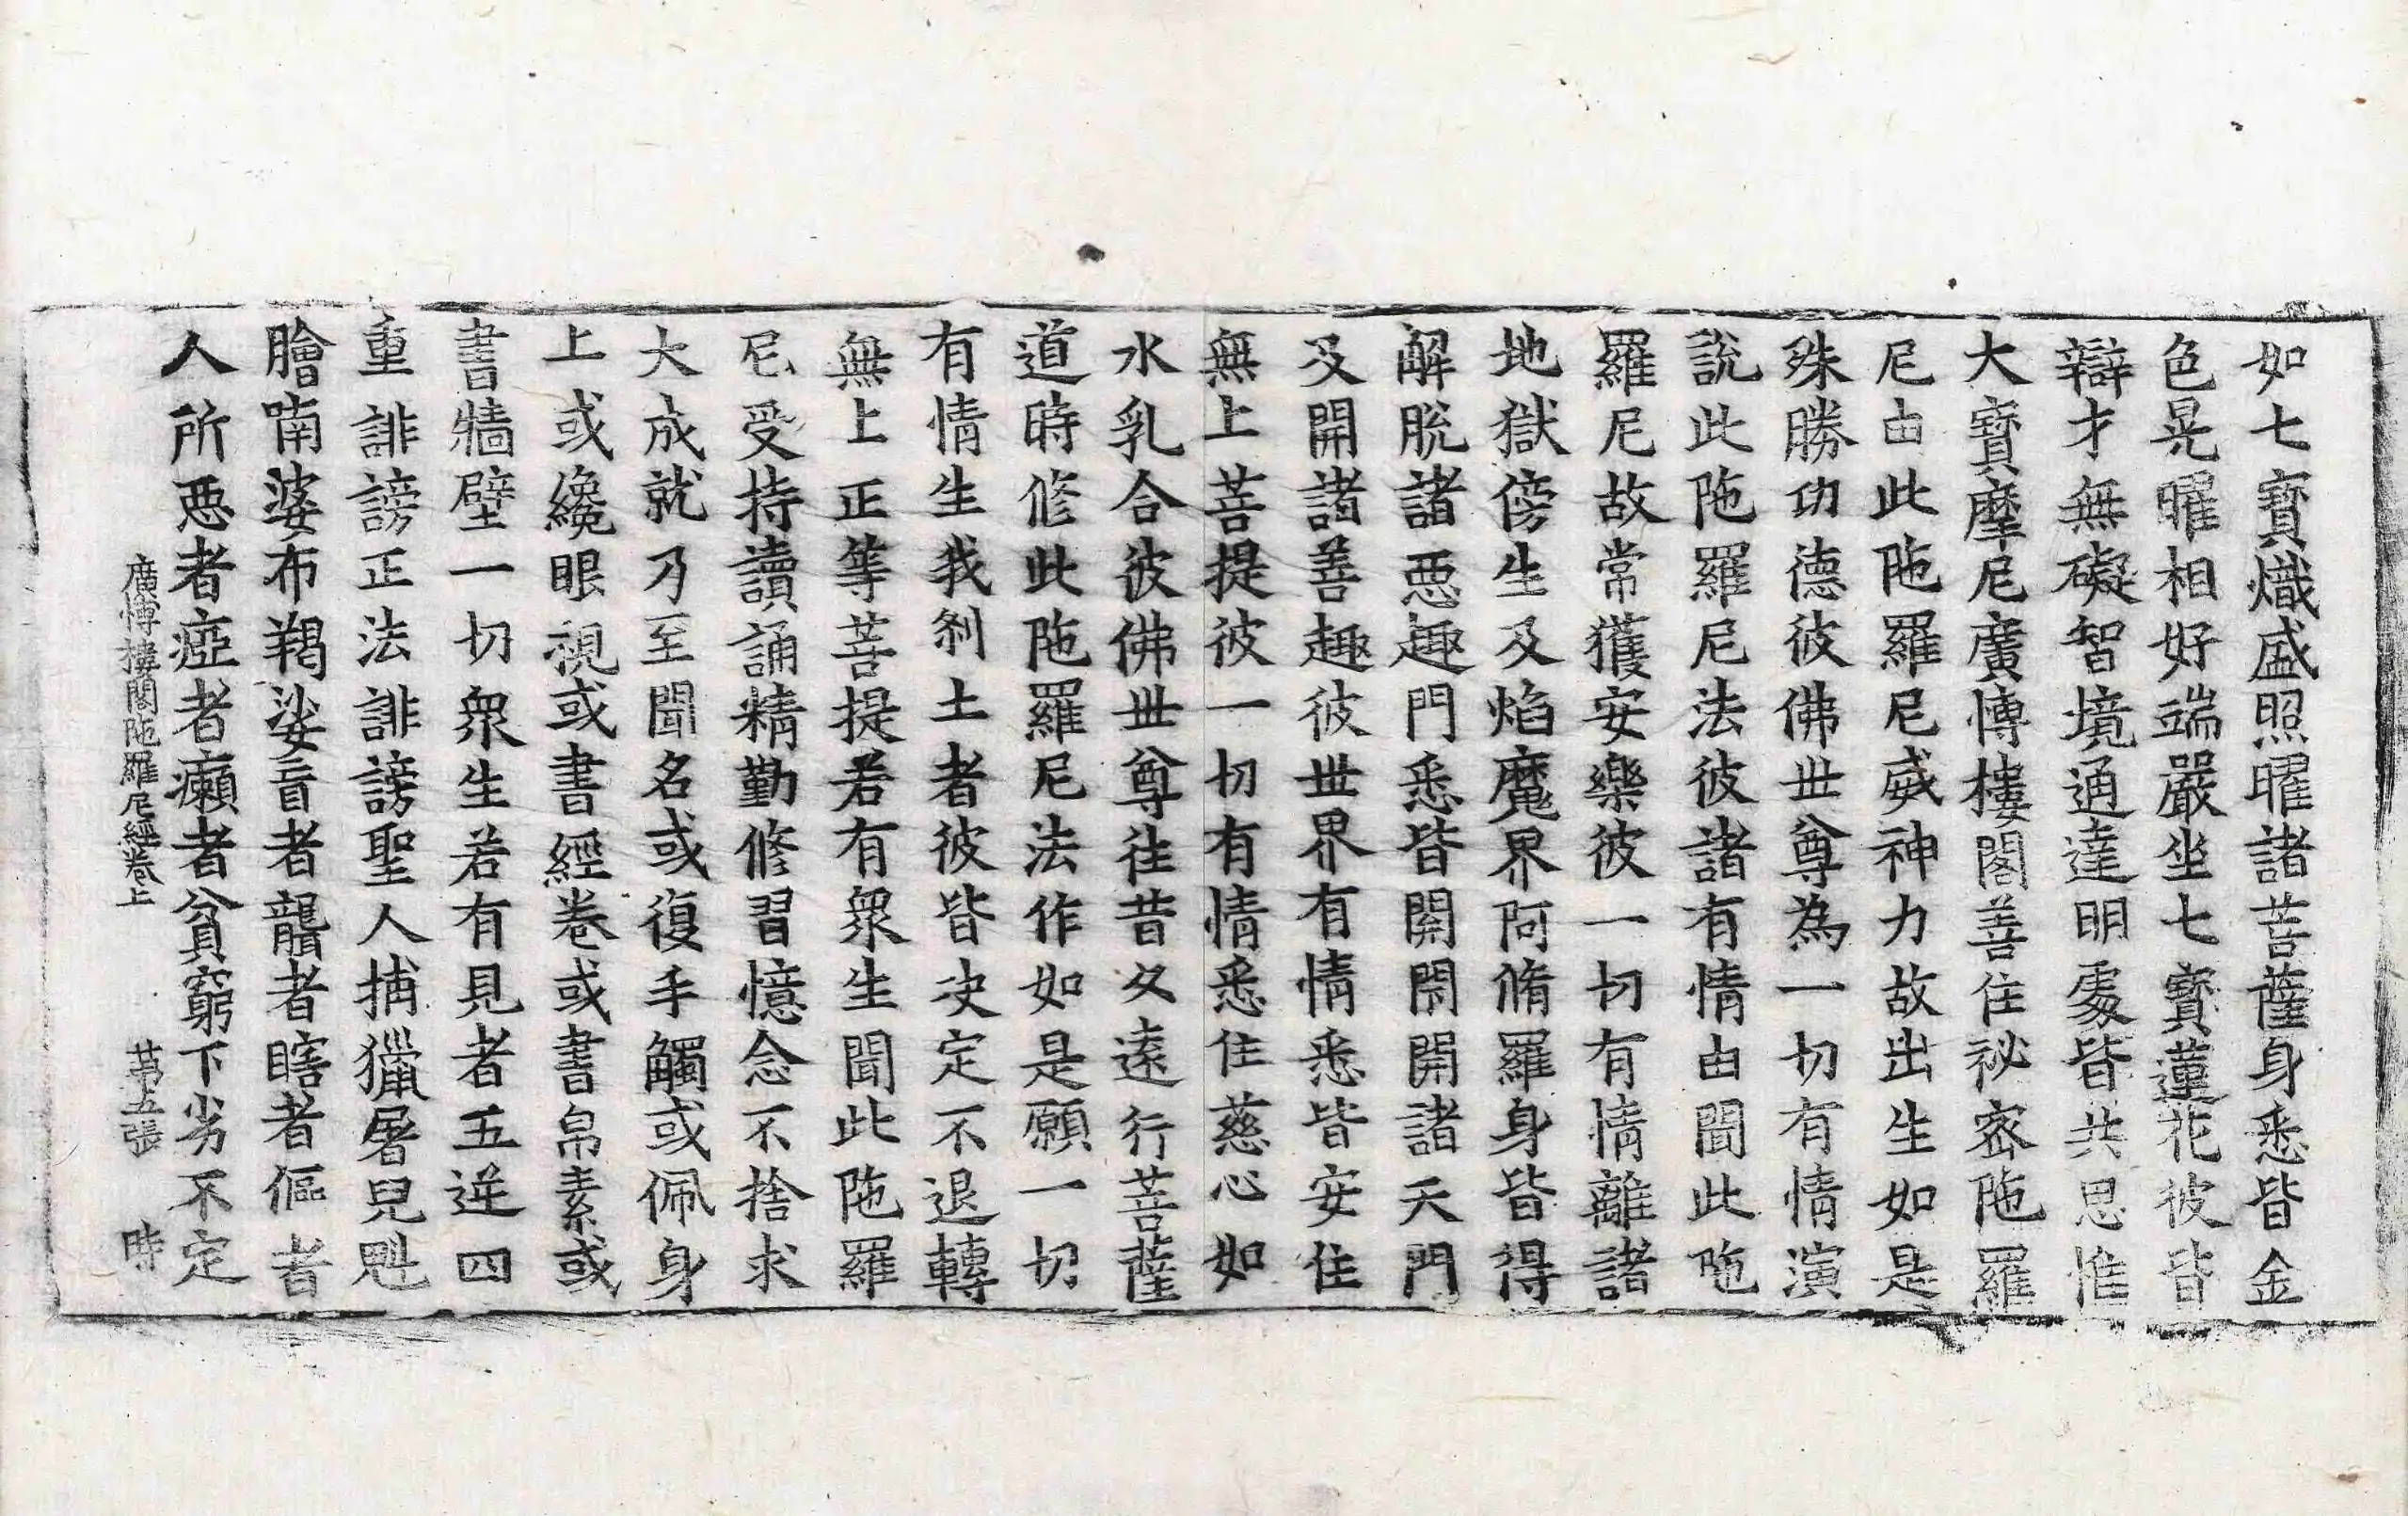 如七寶熾盛照曜諸菩薩身悉皆金
色晃曜相好端嚴坐七寶蓮花彼皆
辯才無礙智境通達明處皆共思惟
大寶摩尼廣博樓閣善住祕密陁羅
尼由此陁羅尼威神力故出生如是
殊勝功德彼佛世尊為一切有情演
說此陁羅尼法彼諸有情由聞此陁
羅尼故常獲安樂彼一切有情離諸
地獄傍生及焰魔界阿脩羅身皆得
解脫諸惡趣門悉皆關閇開諸天門
及開諸善趣彼世界有情悉皆安住
無上菩提彼一切有情悉住慈心如
水乳合彼佛世尊往昔久遠行菩薩
道時修此陁羅尼法作如是願一切
有情生我剎土者彼皆决定不退轉
無上正等菩提若有眾生聞此陁羅
尼受持讀誦精勤修習憶念不捨求
大成就乃至聞名或復手觸或佩身
上或纔眼視或書經卷或書帛素或
書牆壁一切眾生若有見者五逆四
重誹謗正法誹謗聖人捕獵屠兒魁
膾喃婆布羯娑盲者聾者瞎者傴者
人所惡者瘂者癩者貧窮下劣不定
廣博樓閣陁羅尼經卷上 苐五張 時